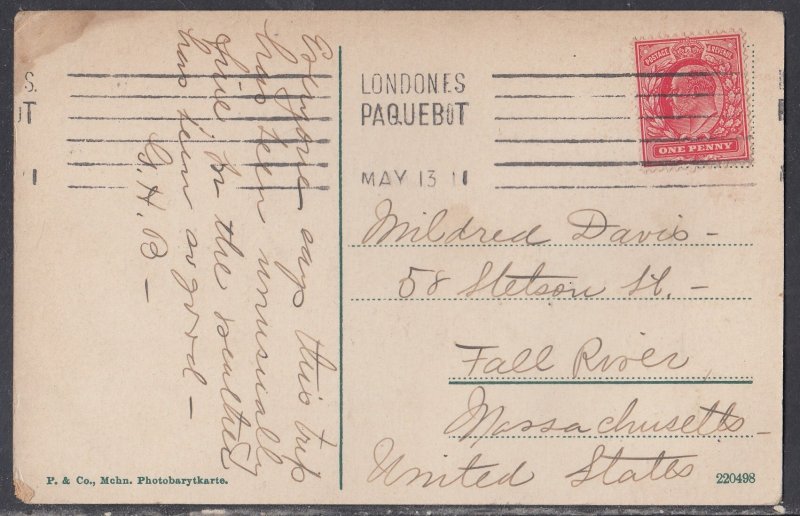 Everyone says this trip
has been unusually
fine for the weather
has been so good —
G.H.B —
S.
OT
1
LONDON E.S.
PAQUEBOT
MAY 13 11
POSTAGE & REVENUE
ONE PENNY
Mildred Davis —
58 Stetson St. —
Fall River
Massachusetts —
United States
P. & Co., Mchn. Photobarytkarte.
220498